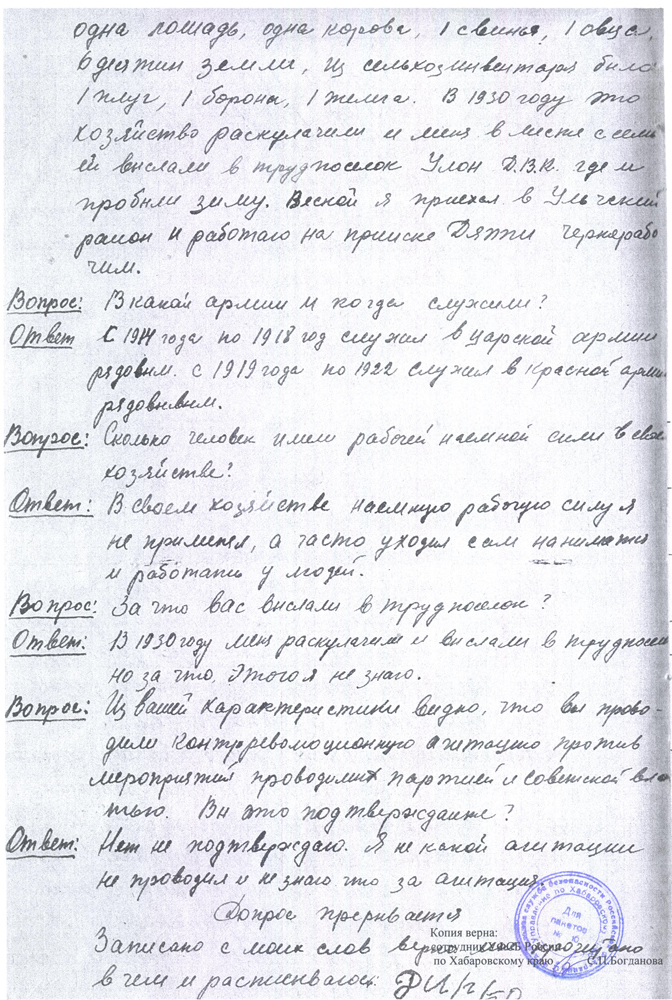 одна лошадь, одна корова, 1 свинья, 1 овца,
6 десятин земли, из сельхозинвентаря было
1 плуг, 1 борона, 1 телега. В 1930 году это
хозяйство раскулачили и меня в месте с семь
ей выслали в трудпоселок Улон Д.В.К. где и
пробыли зиму. Весной я приехал в Ульчский
район и работаю на прииске Дяппи чернорабо
чим.
Вопрос: В какой армии и когда служили?
Ответ С 1914 года по 1918 год служил в царской армии
рядовым. с 1919 года по 1922 служил в Красной арми
рядовым.
Вопрос: Сколько человек имели рабочей наемной силы в свое
хозяйстве?
Ответ: В своем хозяйстве наемную рабочую силу я
не применял, а часто уходил сам наниматься
и работать у людей.
Вопрос: За что вас выслали в трудпоселок?
Ответ: В 1930 году меня раскулачили и выслали в трудпосел
но за что, этого я не знаю.
Вопрос: Из вашей характеристики видно, что вы прово-
дили контрреволюционную агитацию против
мероприятий проводимых партией и советской вла
тью. Вы это подтверждаете?
Ответ: Нет не подтверждаю. Я не какой агитации
не проводил и не знаю что за агитация.
Допрос прерывается
Записано с моих слов верно
в чем и расписываюсь:
Копия верна:
сотрудник УФСБ России
по Хабаровскому краю С.П.Богданова
Для
пакетов
№ 10